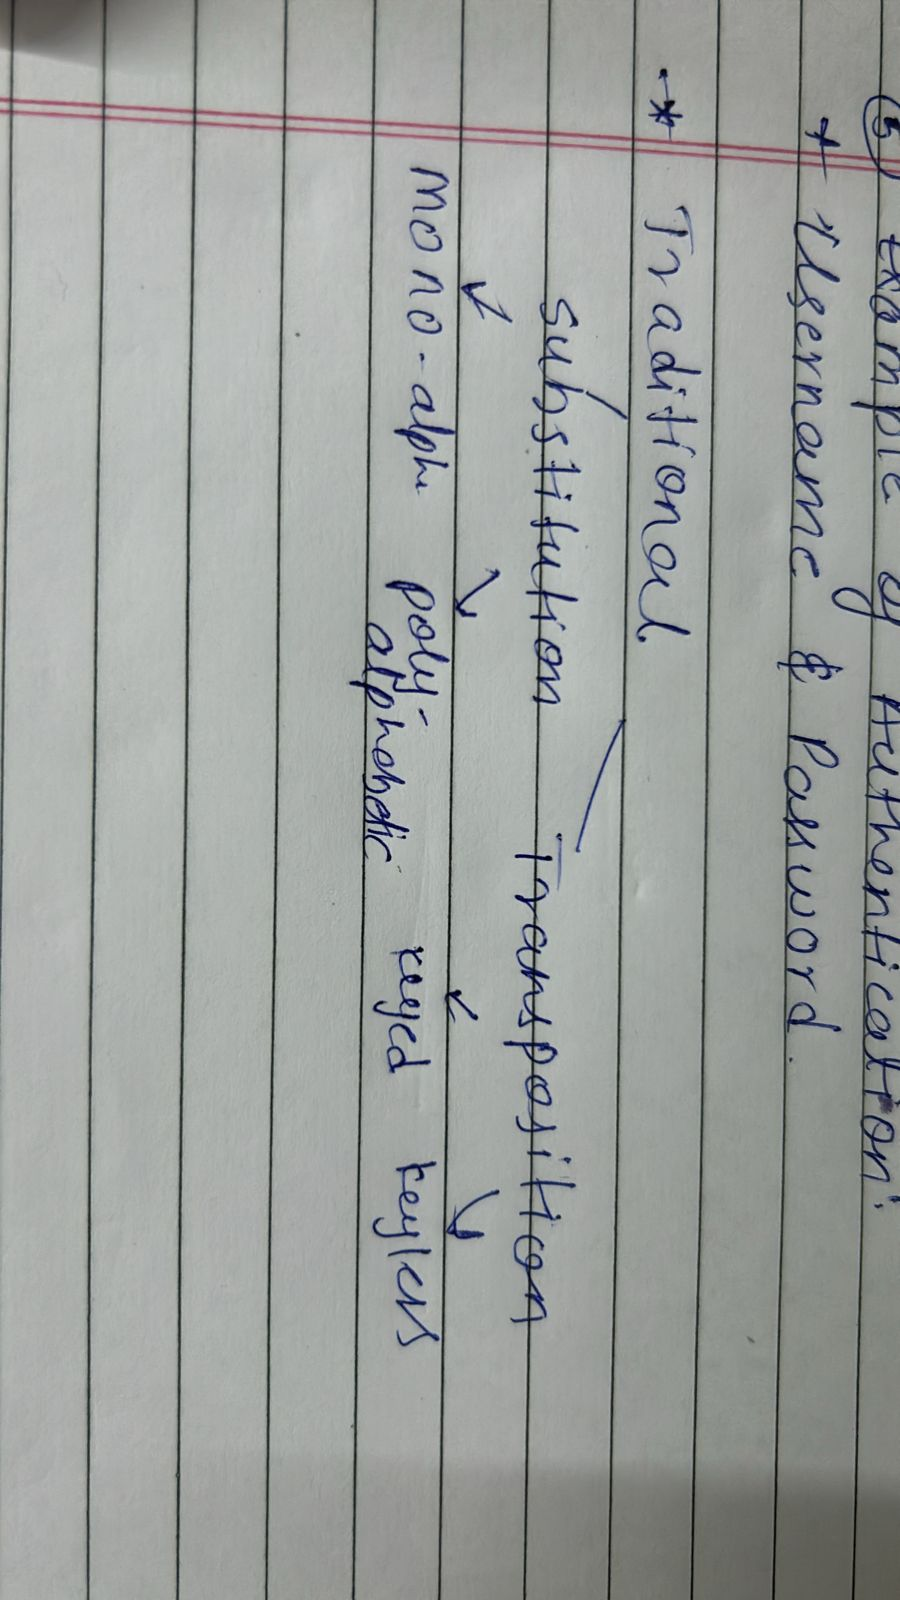 (5) Example of Authentication:
* Username & Password.
* Traditional
Substitution Transposition
mono-alpha poly- keyed keyless
alphabetic